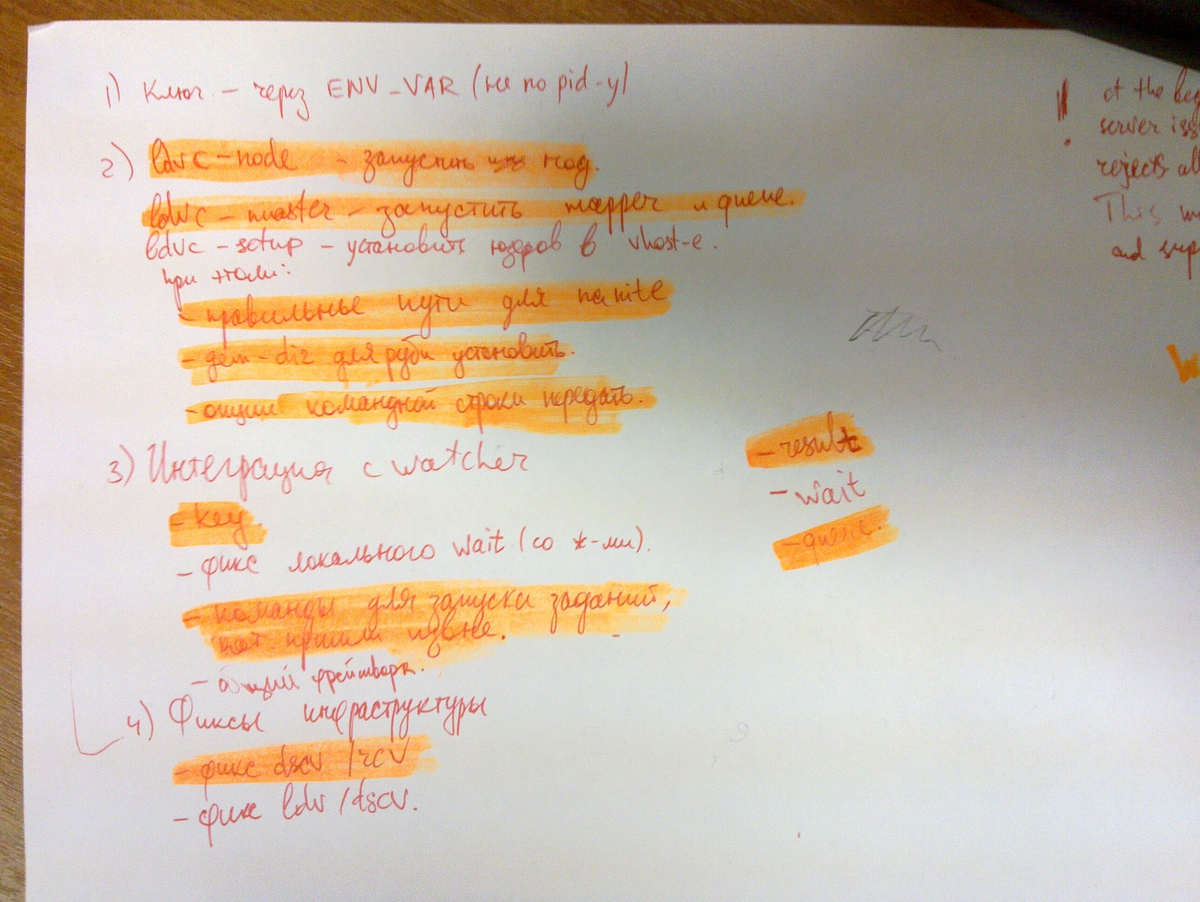 1) Ключ – через ENV_VAR (не по pid-у)
2) ldvc-node - запустить нод.
ldvc-master - запустить mapper и queue.
ldvc-setup - установить юзеров в vhost-е.
при этом:
- правильные пути для nanite
- gem-dir для руби установить.
- опции командной строки передать.
3) Интеграция с watcher
- key.
- фикс локального wait (со *-ми).
- команды для запуска заданий,
кот. пришли извне.
- общий фреймворк.
4) Фиксы инфраструктуры
- фикс dscv / rcv
- фикс ldv / dscv.
- result
- wait
- queue.
! at the beg
server iss
rejects all
This
and sup